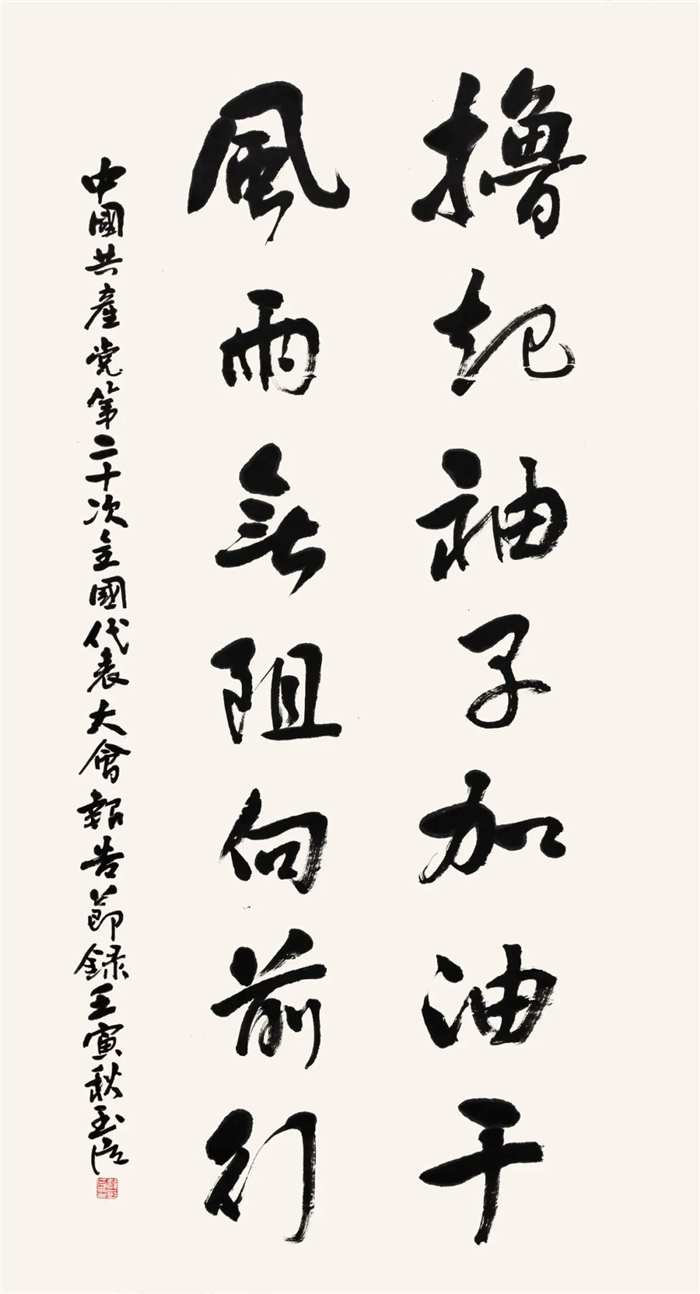 擼起袖子加油干
風雨無阻向前行
中國共產党第二十次全國代表大會報告節録壬寅秋玉